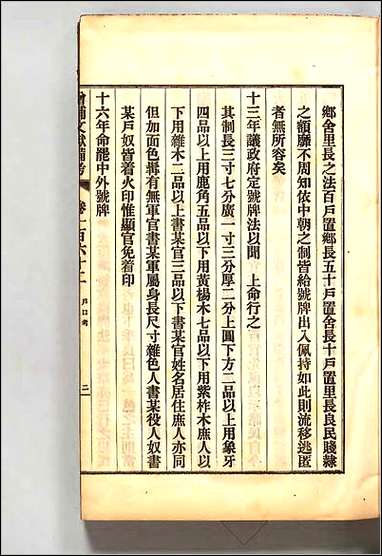 鄉舍里長之法百戶置鄉長五十戶置舍長十戶置里長良民賤隸
之額靡不周知依中朝之制皆給號牌出入佩持如此則流移逃匿
者無所容矣
十三年議政府定號牌法以聞 上命行之
其制長三寸七分廣一寸三分厚二分上圓下方二品以上用象牙
四品以上用鹿角五品以下用黃楊木七品以下用紫柞木庶人以
下用雜木二品以上書某官三品以下書某官姓名居住庶人亦同
但加面色髥有無軍官書某軍屬身長尺寸雜色人書某役人奴書
某戶奴皆着火印惟顯官免着印
十六年命罷中外號牌
增補文獻備考 卷一百六十一 戶口考 二